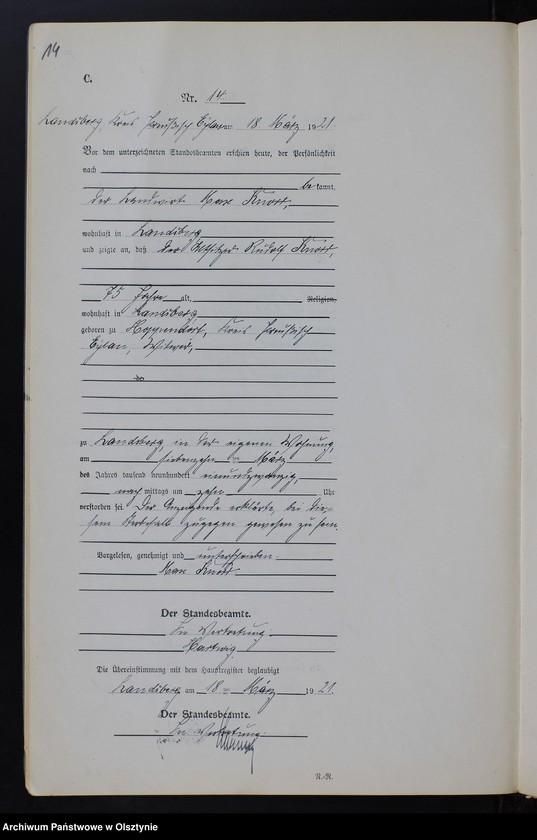 14
C.
Nr. 14
Landsberg, Kreis Preußisch Eylau am 18. März 1921
Vor dem unterzeichneten Standesbeamten erschien heute, der Persönlichkeit
nach
be kannt,
der Landwirt Max Knorr,
wohnhaft in Landsberg
und zeigte an, daß der Altsitzer Rudolf Knorr,
75 Jahre alt, Religion,
wohnhaft in Landsberg
geboren zu Hoppendorf, Kreis Preußisch
Eylau, Witwer,
zu Landsberg, in der eigenen Wohnung,
am siebenzehn ten März
des Jahres tausend neunhundert einundzwanzig,
nach mittags um zehn Uhr
verstorben sei. Der Anzeigende erklärte, bei die-
sem Sterbefall zugegen gewesen zu sein.
Vorgelesen, genehmigt und unterschrieben
Max Knorr
Der Standesbeamte.
In Vertretung
Hartwig
Die Übereinstimmung mit dem Hauptregister beglaubigt
Landsberg, am 18 ten März 1921.
Der Standesbeamte.
In Vertretung:
N.-R.
Archiwum Państwowe w Olsztynie